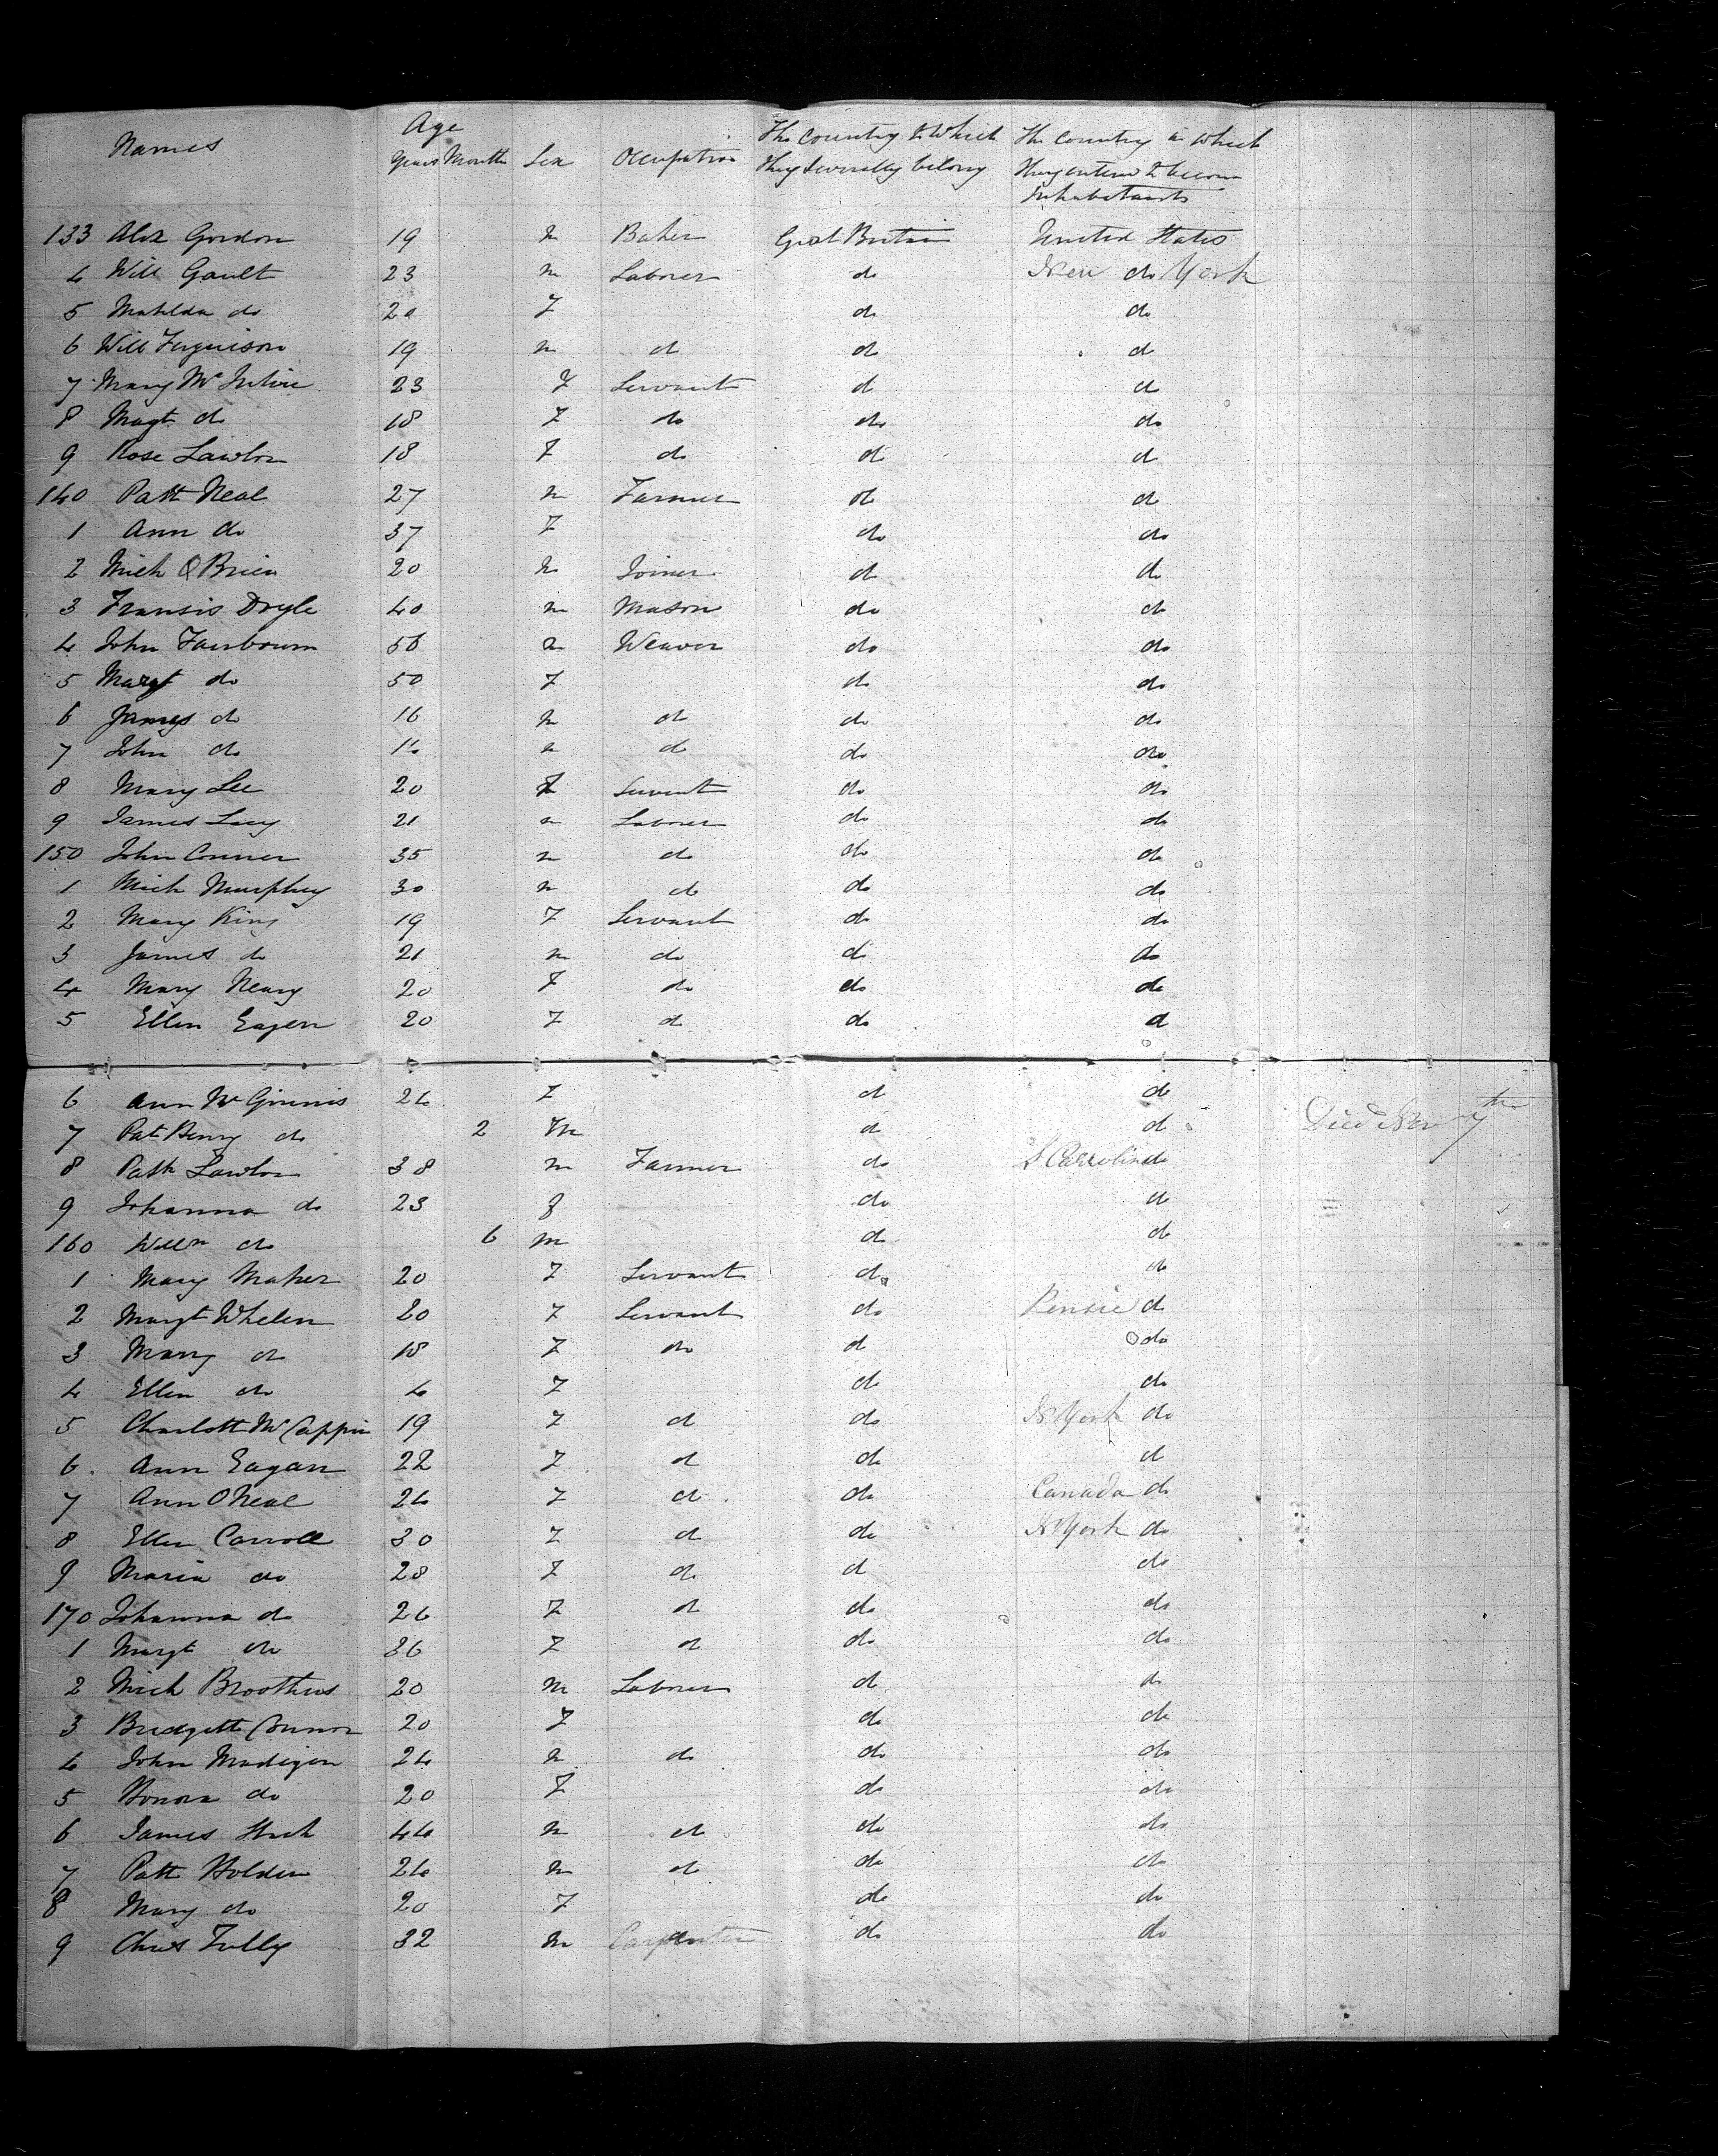 Names Age Years Month Sex Occupation The Country to Which they Severally belong The Country in Which they intend to become Inhabitants
133 Alex Gordon 19 m Baker Great Britain United States
4 Will Gault 23 m Laborer do New do York
5 Mahlda do 20 F do do
6 Will Ferguison 19 m do do do
7 Mary McIntire 23 F Servant do do
8 Magt do 18 F do do do
9 Rose Lawlor 18 F do do do
140 Patt Neal 27 m Farmer do do
1 Ann do 37 F do do
2 Mich O Brien 20 m Joiner do do
3 Fransis Doyle 40 m Mason do do
4 John Fairbourn 56 m Weaver do do
5 Margt do 50 F do do
6 James do 16 m do do do
7 John do 14 m do do do
8 Mary Lee 20 F Servent do do
9 James Lacy 21 m Laborer do do
150 John Conner 35 m do do do
1 Mich Murphey 30 m do do do
2 Mary King 19 F Servant do do
3 James do 21 m do do do
4 Mary Neary 20 F do do do
5 Ellen Eagen 20 F do do do
6 Ann McGinnis 24 F do do
7 Pat Henry do 2 m do do Died Nov 7th
8 Patk Lawlor 38 m Farmer do S Carrolin do
9 Johanna do 23 f do do
160 Willm do 6 m do do
1 Mary Maher 20 F Servant do do
2 Margt Whelen 20 F Servant do Pensie do
3 Mary do 18 F do do do
4 Ellen do 4 F do do
5 Charlott McCappin 19 F do do N York do
6 Ann Eagan 22 F do do do
7 Ann O Neal 24 F do do Canada do
8 Ellen Carroll 30 F do do N York do
9 Maria do 28 F do do do
170 Johanna do 26 F do do do
1 Margt do 26 F do do do
2 Mich Broothers 20 m Laborer do do
3 Bridgett Connor 20 F do do
4 John Madigan 24 m do do do
5 Honora do 20 F do do
6 James 44 m do do do
7 Patt Holden 24 m do do do
8 Mary do 20 F do do
9 Chas Tully 32 m Carpenter do do